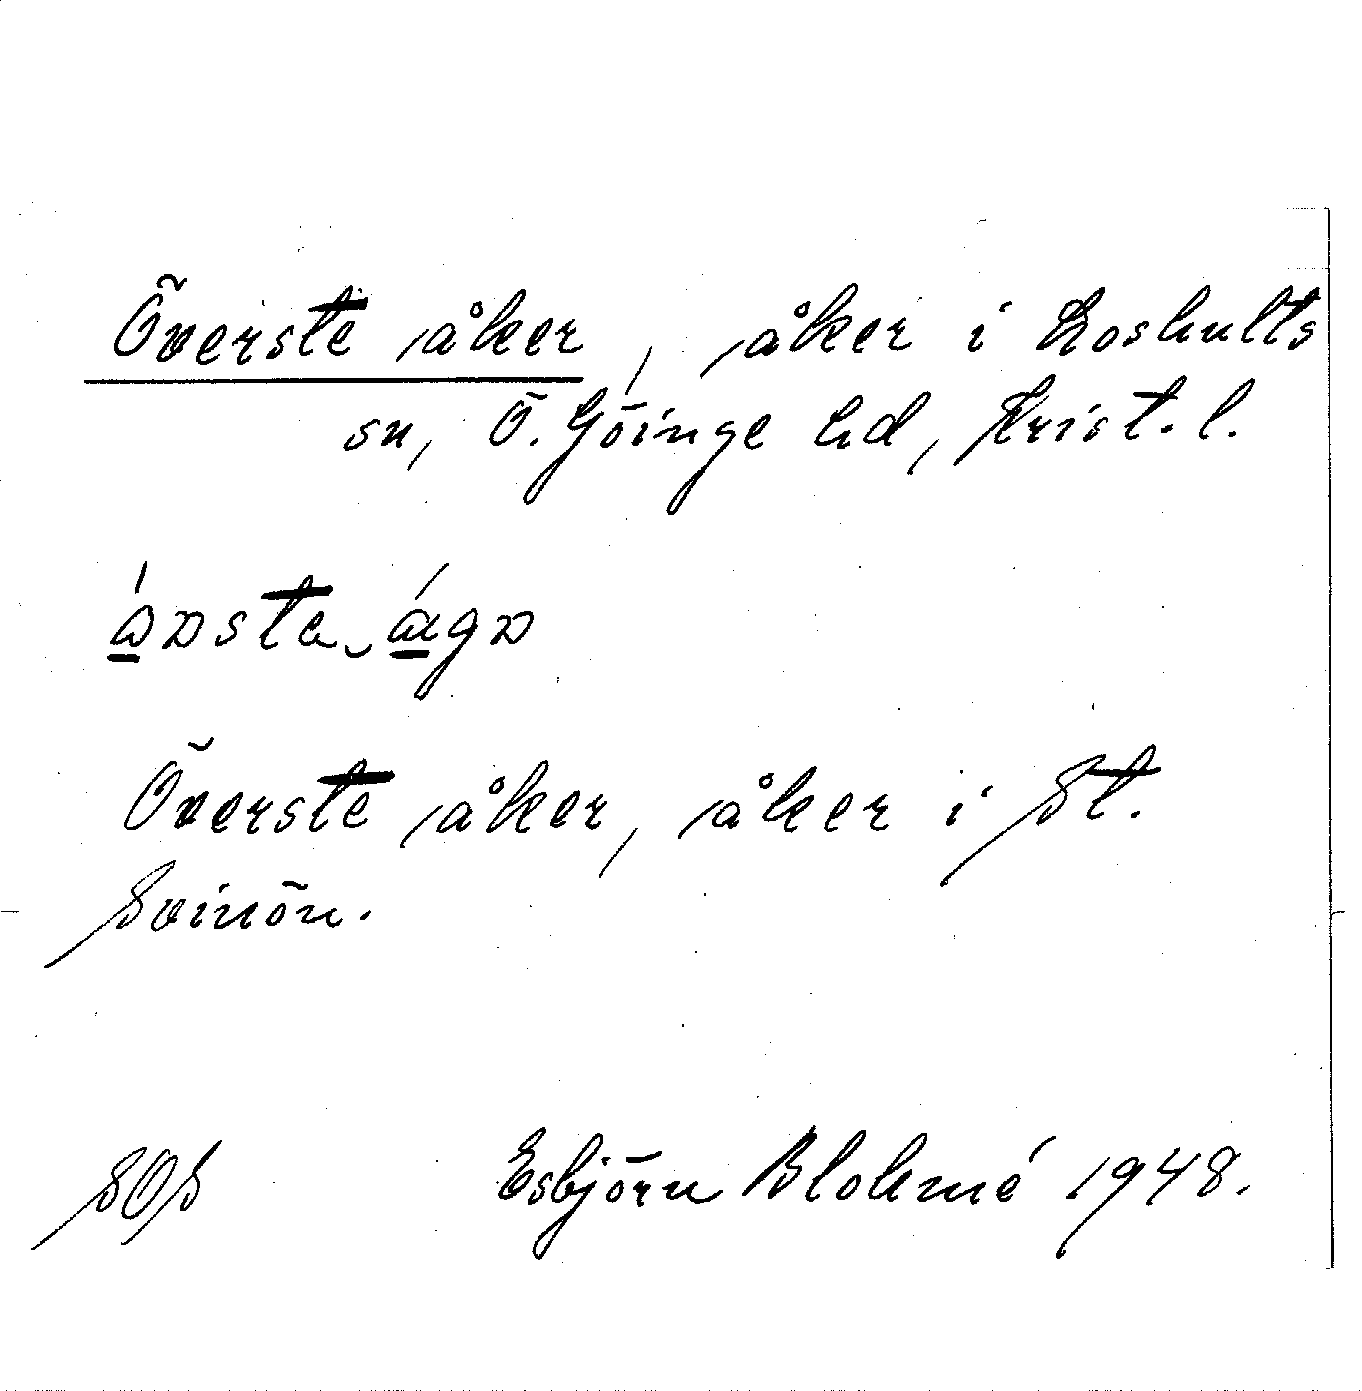 Överste åker, åker i Loshults
sn, Ö. Göinge hd, Krist. l.
Överste åker, åker i St.
Svinön.
SOS Esbjörn Blohmé 1948.